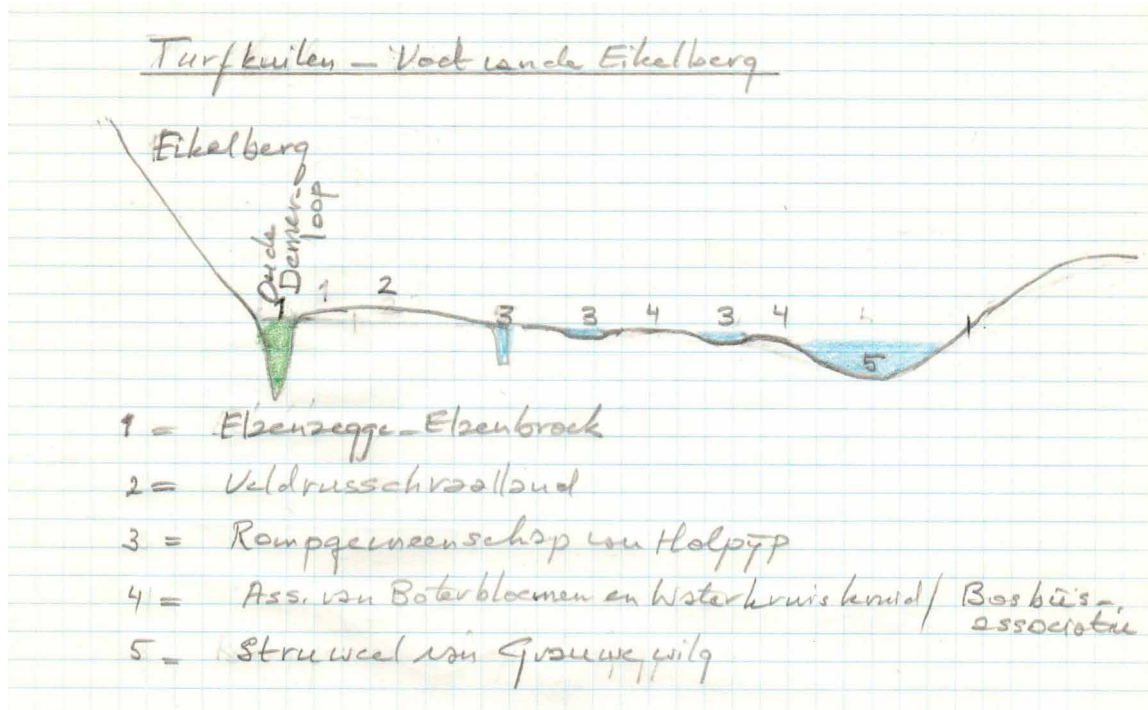 Turfkuilen – Voet van de Eikelberg
Eikelberg
Oude
Demer-
loop
1 1 2 3 3 4 3 4
5
1 = Elzenzegge-Elzenbroek
2 = Veldrusschraalland
3 = Rompgemeenschap van Holpijp
4 = Ass. van Boterbloemen en Waterkruiskruid / Bosbies-
associatie
5 = Struweel van Grauwe wilg